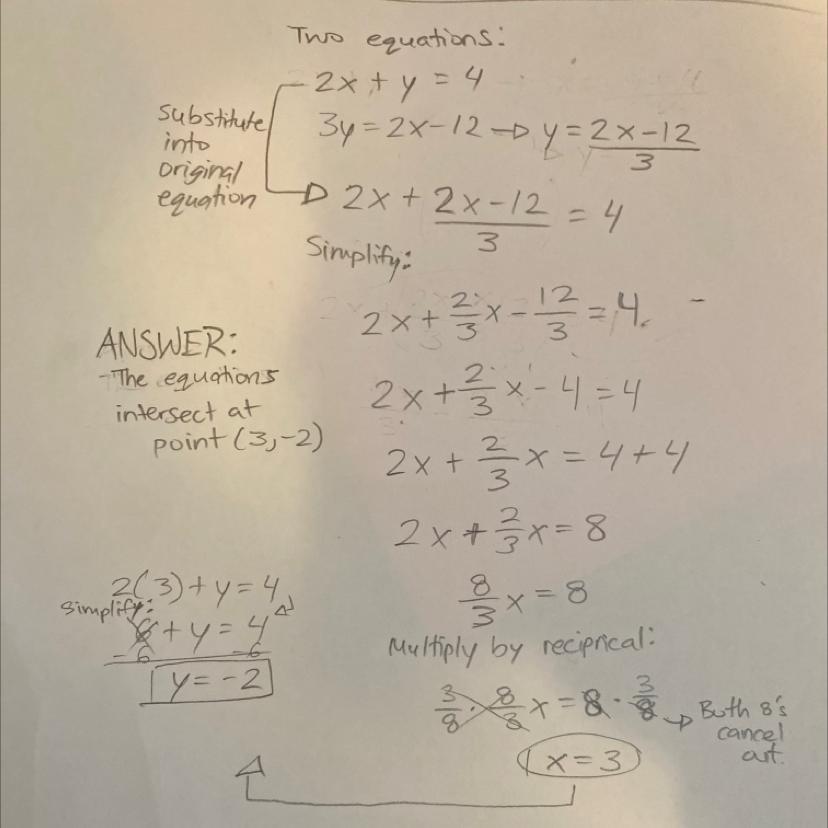 Two equations:
2x + y = 4
3y = 2x - 12 → y = (2x - 12)/3
substitute
into
original
equation
2x + (2x - 12)/3 = 4
Simplify:
2x + 2/3 x - 12/3 = 4
2x + 2/3 x - 4 = 4
2x + 2/3 x = 4 + 4
2x + 2/3 x = 8
8/3 x = 8
Multiply by reciprical:
3/8 · 8/3 x = 8 · 3/8 → Both 8's
cancel
out.
x = 3
2(3) + y = 4
Simplify:
6 + y = 4
-6 -6
y = -2
ANSWER:
- The equations
intersect at
point (3, -2)